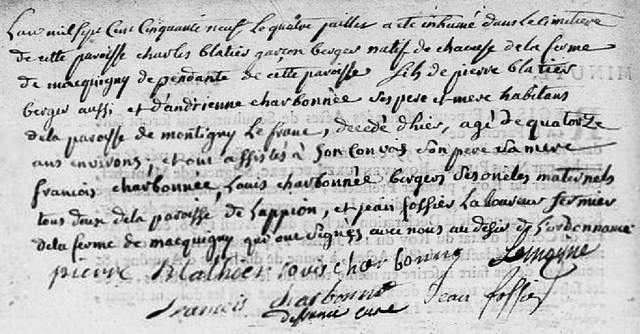 Lan mil sept Cent Cinquante neuf Le quatre juillet a eté inhumé dans le Cimetiere
de cette paroisse charles blatier garçon berger natif de chaeuse de la ferme
de macquigny dépendante de cette paroisse fils de pierre blatier
berger aussi et d'andrienne charbonnée ses pere et mere habitans
de la paroisse de montigny Le franc, decedé d'hier, agé de quatorze
ans environs, et ont assistés à son Convoy Son pere Sa mere
françois charbonnée, Louis charbonnée bergers Ses oncles maternels
tous deux de la paroisse de Lappion, et jean fossier Laboureur fermier
de la ferme de macquigny qui ont Signés avec nous au desir de Lordonnance
pierre Blathier Louis charbonny Lemoine
francois charbonné Jean fossier
curé